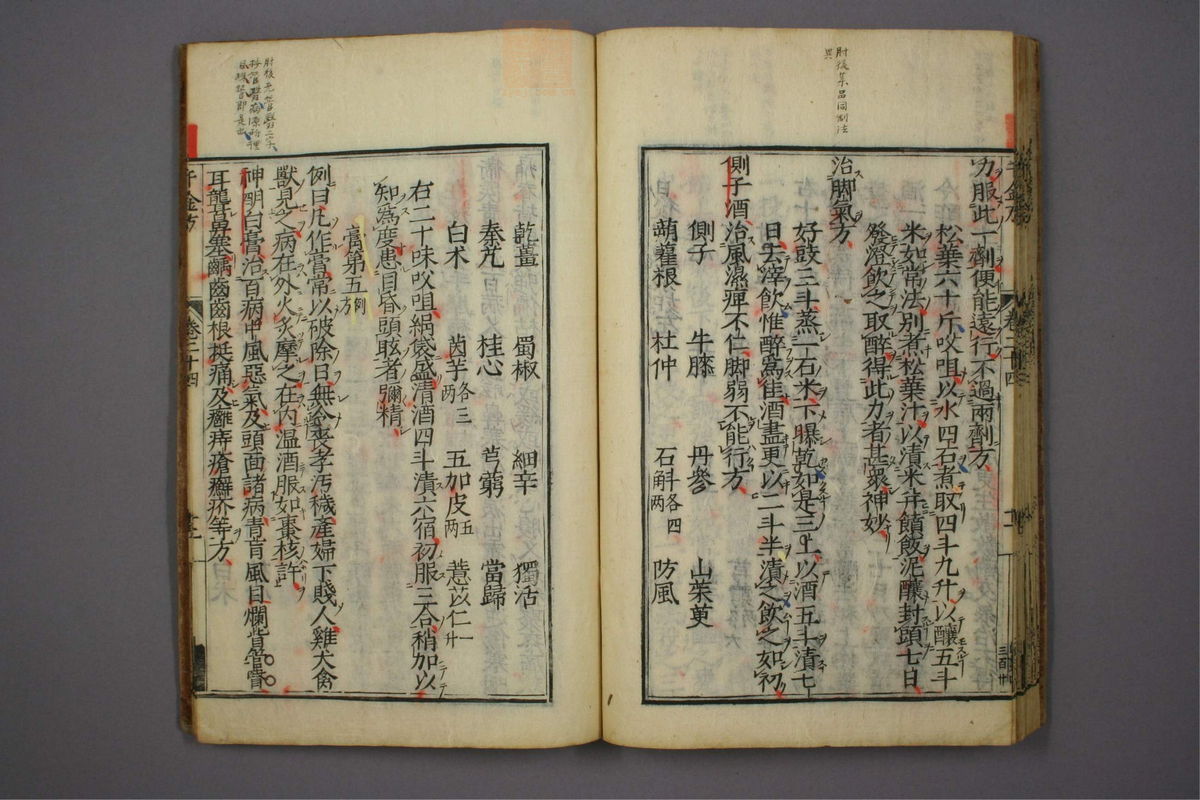 肘後集品同制法
異
力服此一劑便能遠行不過兩劑方
松葉六十斤㕮咀以水四石煮取四斗九升以釀五斗
米如常法別煮松葉汁以漬米并饋飯泥釀封頭七日
發澄飲之取醉得此力者甚衆神妙
治脚氣方
好豉三斗蒸一石米下曝乾如是三上以酒五斗漬七
日去滓飲惟醉爲佳酒盡更以二斗半漬之飲之如初
側子酒治風濕痺不仁脚弱不能行方
側子 牛膝 丹參 山茱萸
蒴藋根 杜仲 石斛各四兩 防風
乾薑 蜀椒 細辛 獨活
秦艽 桂心 芎藭 當歸
白术 茵芋各三兩 五加皮五兩 薏苡仁一升
右二十味㕮咀絹袋盛清酒四斗漬六宿初服三合稍加以
知爲度患目昏頭眩者彌精
膏第五例方
例曰凡作膏常以破除日無令喪孝汚穢產婦下賤人雞犬禽
獸見之病在外火炙摩之在内温酒服如棗核許
神明白膏治百病中風惡氣及頭面諸病青盲風目爛眥管瞖
耳聾鼻塞齲齒齒根挺痛及癰痔瘡癬疥等方
千金方
卷二十四